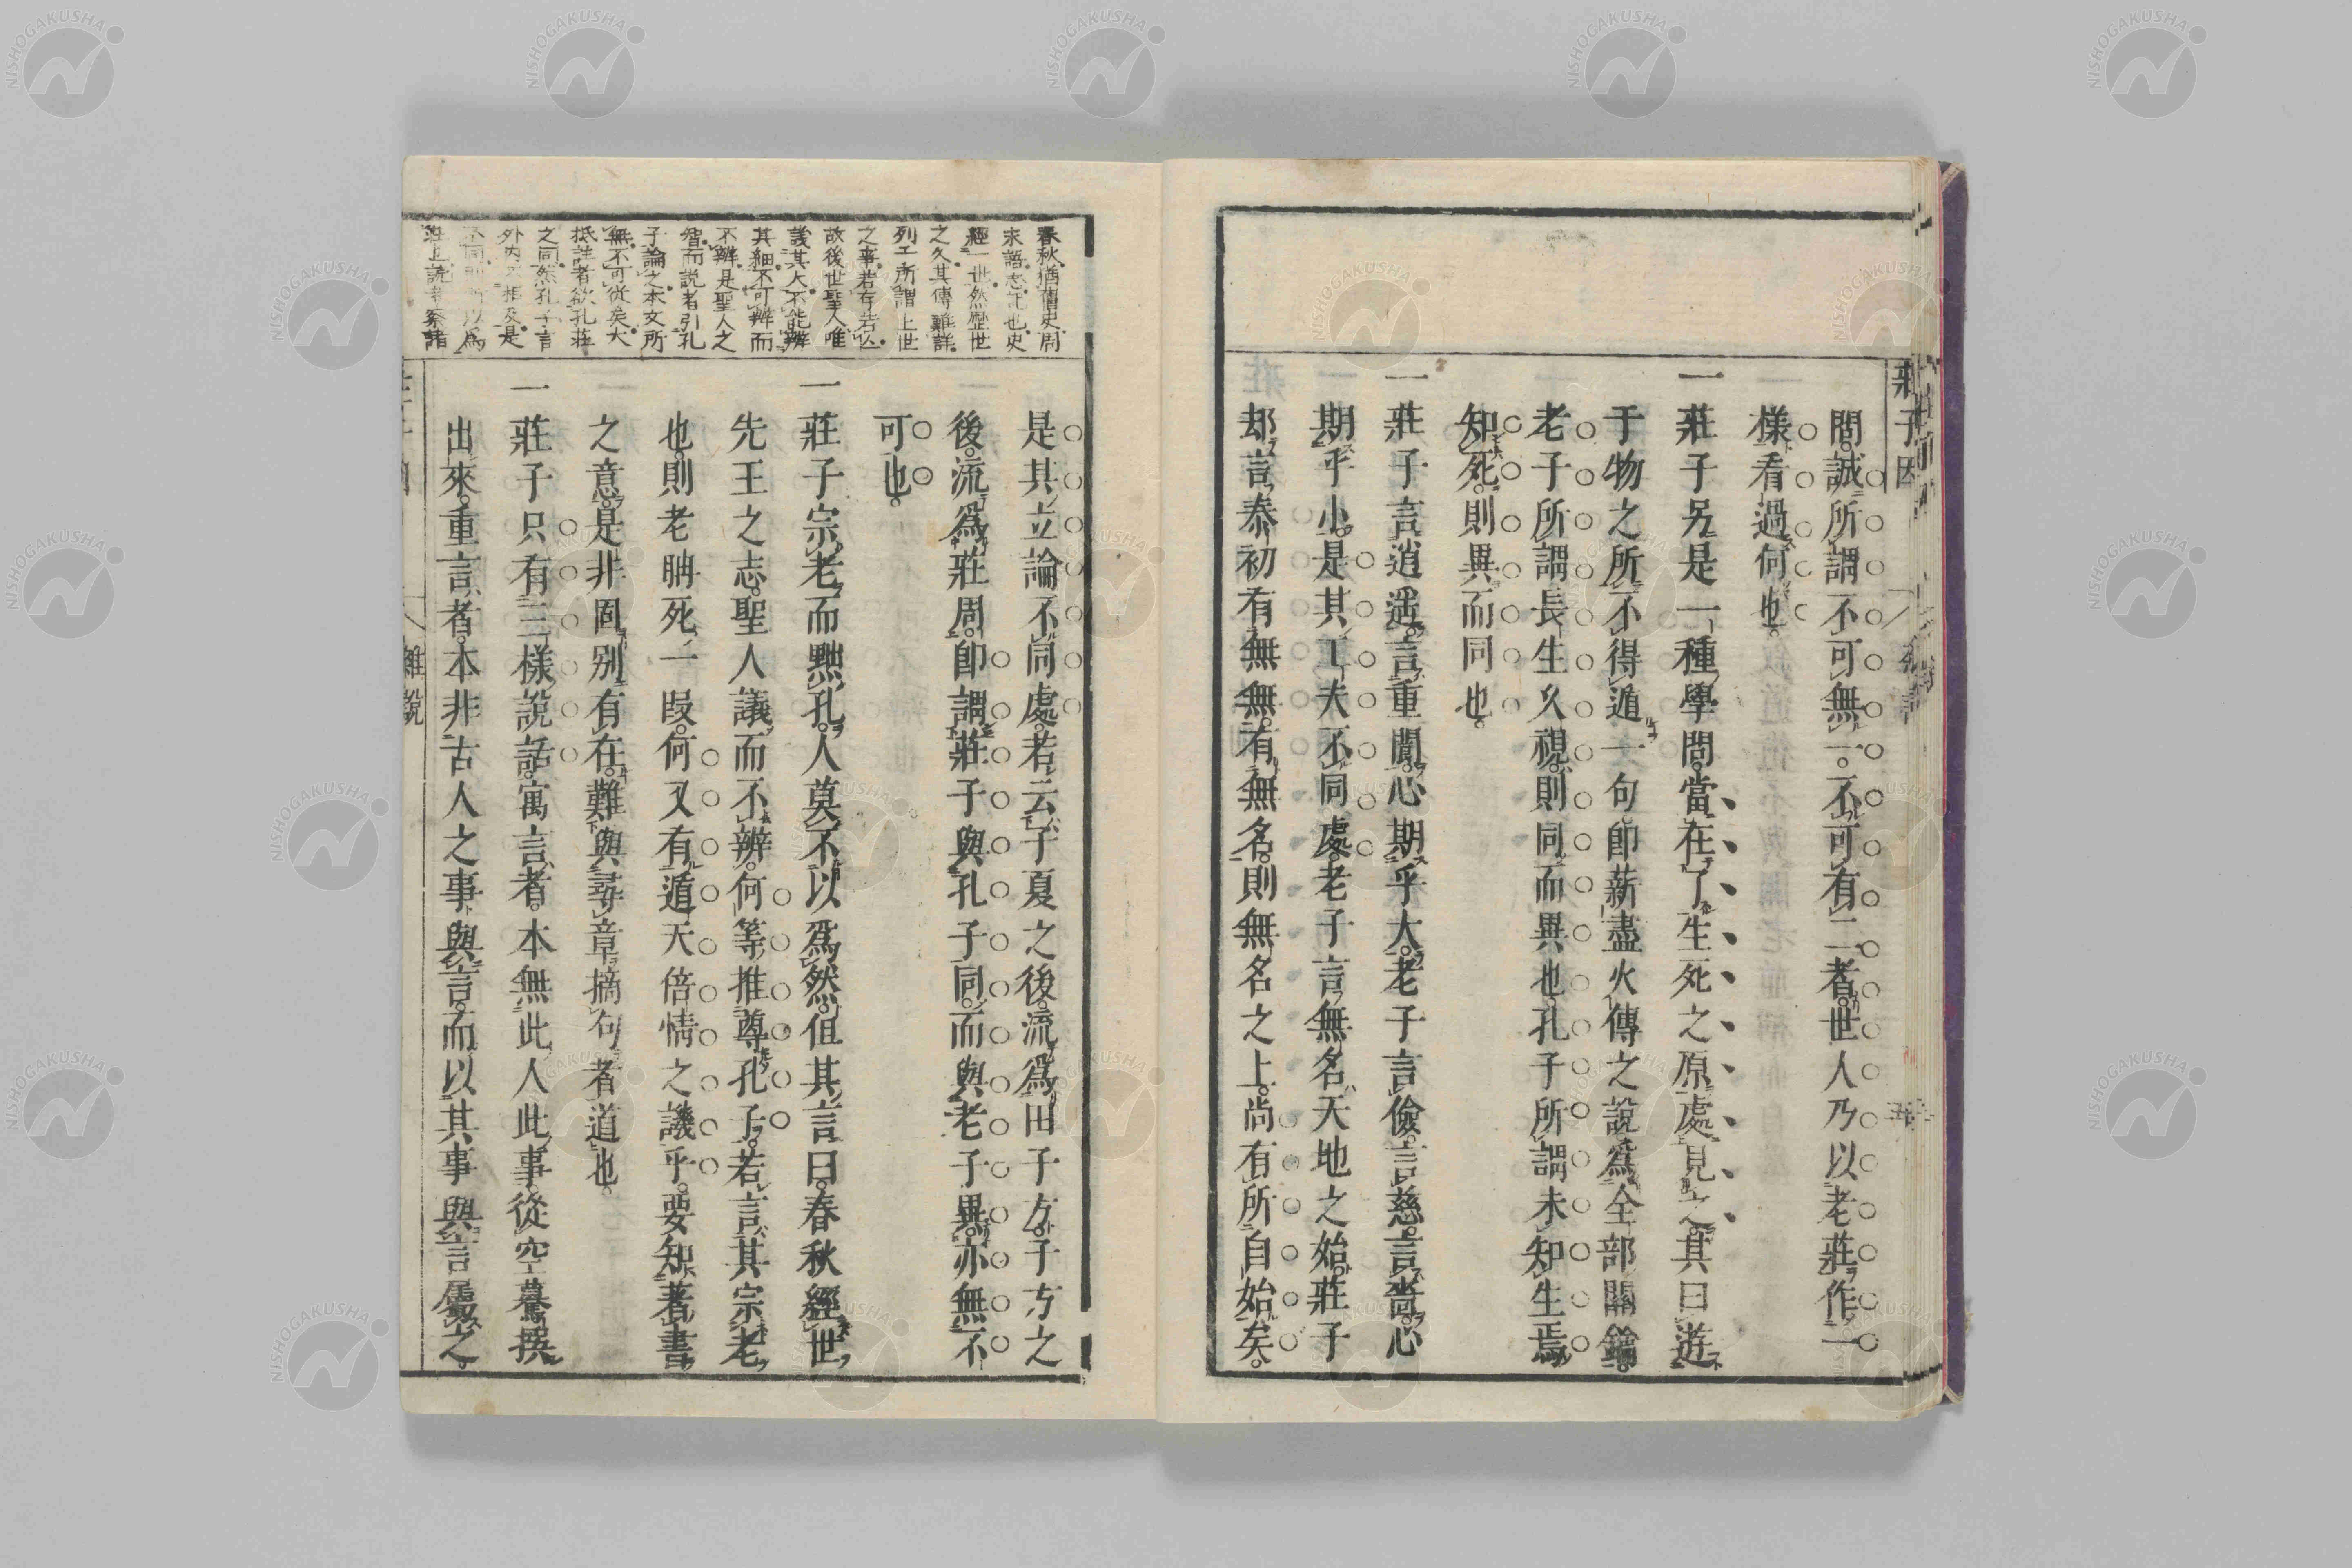 莊子因
問。誠所謂不可無一。不可有二者。世人乃以老莊作一
樣看過何也。
一莊子另是一種學問。當在了生死之原處見之。其曰遊
于物之所不得遁一句卽薪盡火傳之說。爲全部關鑰。
老子所謂長生久視。則同而異也。孔子所謂未知生焉
知死。則異而同也。
一莊子言逍遥。言重閬。心期乎大。老子言儉。言慈。言嗇。心
期乎小。是其工夫不同處。老子言無名天地之始。莊子
却言泰初有無無。有無名。則無名之上。尚有所自始矣。
春秋猶舊史周
經一世然歷世
之久其傳難詳
列工所謂上世
之事若存若亾
故後世聖人唯
議其大不能辨
其細不可辨而
不辨是聖人之
智而說者引孔
子論之本文所
無不可從矣大
抵註者欲孔莊
之同然孔子言
是其立論不同處。若云子夏之後。流爲田子方。子方之
後。流爲莊周。卽謂莊子與孔子同。而與老子異。亦無不
可也。
一莊子宗老而黜孔。人莫不以爲然。但其言曰。春秋經世
先王之志。聖人議而不辨。何等推尊孔子。若言其宗老
也。則老聃死一段。何又有遁天倍情之譏乎。要知著書
之意。是非固別有在。難與尋章摘句者道也。
一莊子只有三樣說話。寓言者。本無此人此事。從空驀撰
出來。重言者。本非古人之事與言。而以其事與言屬之。
雜說